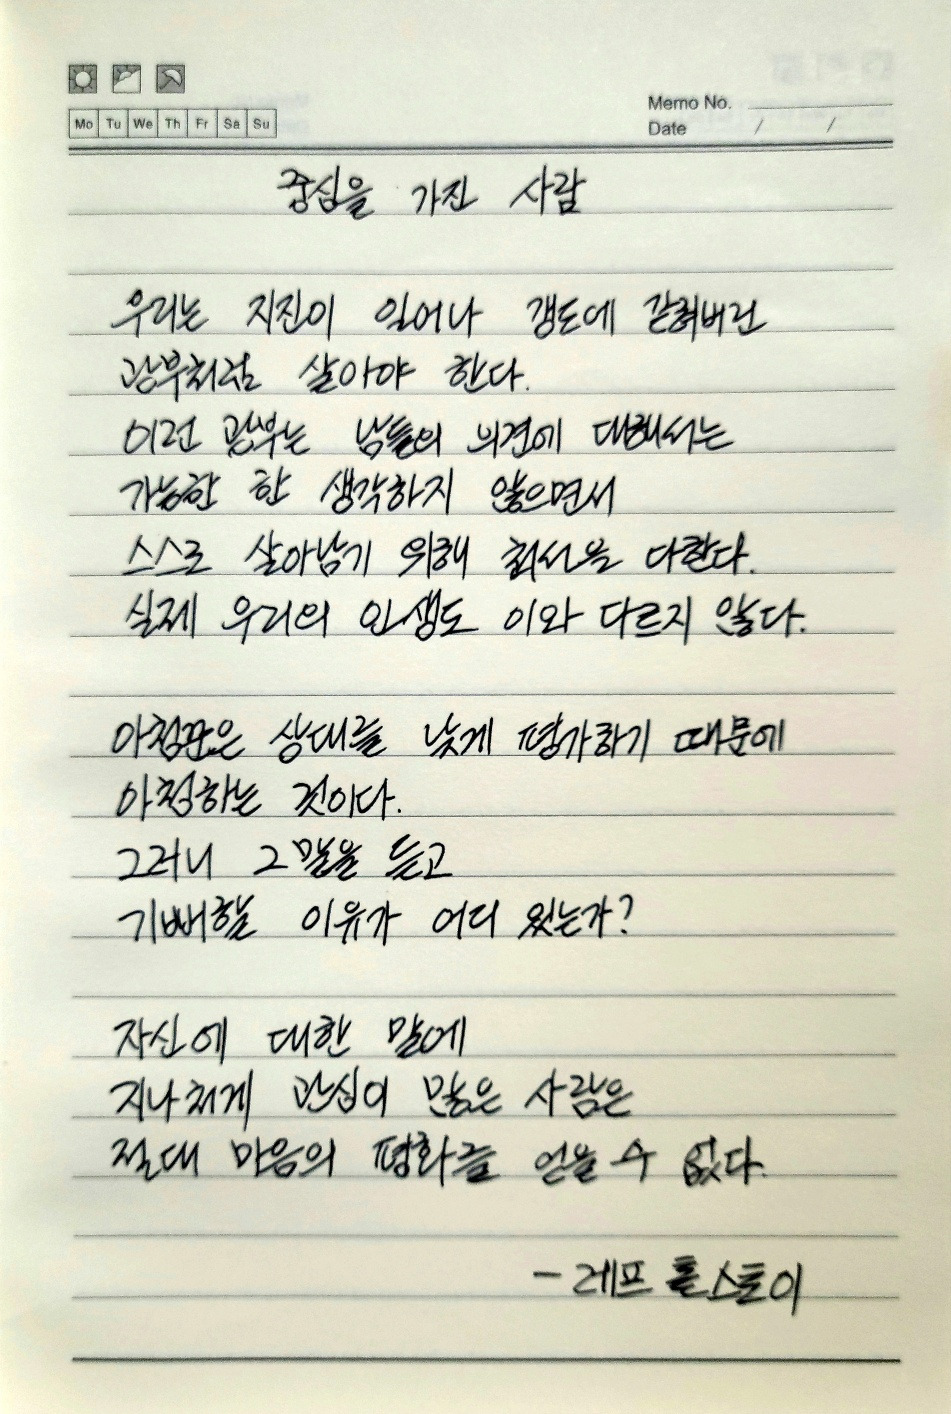 Mo Tu We Th Fr Sa Su
Memo No.
Date / /
중심을 가진 사람
우리는 지진이 일어나 갱도에 갇혀버린
광부처럼 살아야 한다.
이런 광부는 남들의 의견에 대해서는
가능한 한 생각하지 않으면서
스스로 살아남기 위해 최선을 다한다.
실제 우리의 인생도 이와 다르지 않다.
아첨꾼은 상대를 낮게 평가하기 때문에
아첨하는 것이다.
그러니 그 말을 듣고
기뻐할 이유가 어디 있는가?
자신에 대한 말에
지나치게 관심이 많은 사람은
절대 마음의 평화를 얻을 수 없다.
- 레프 톨스토이